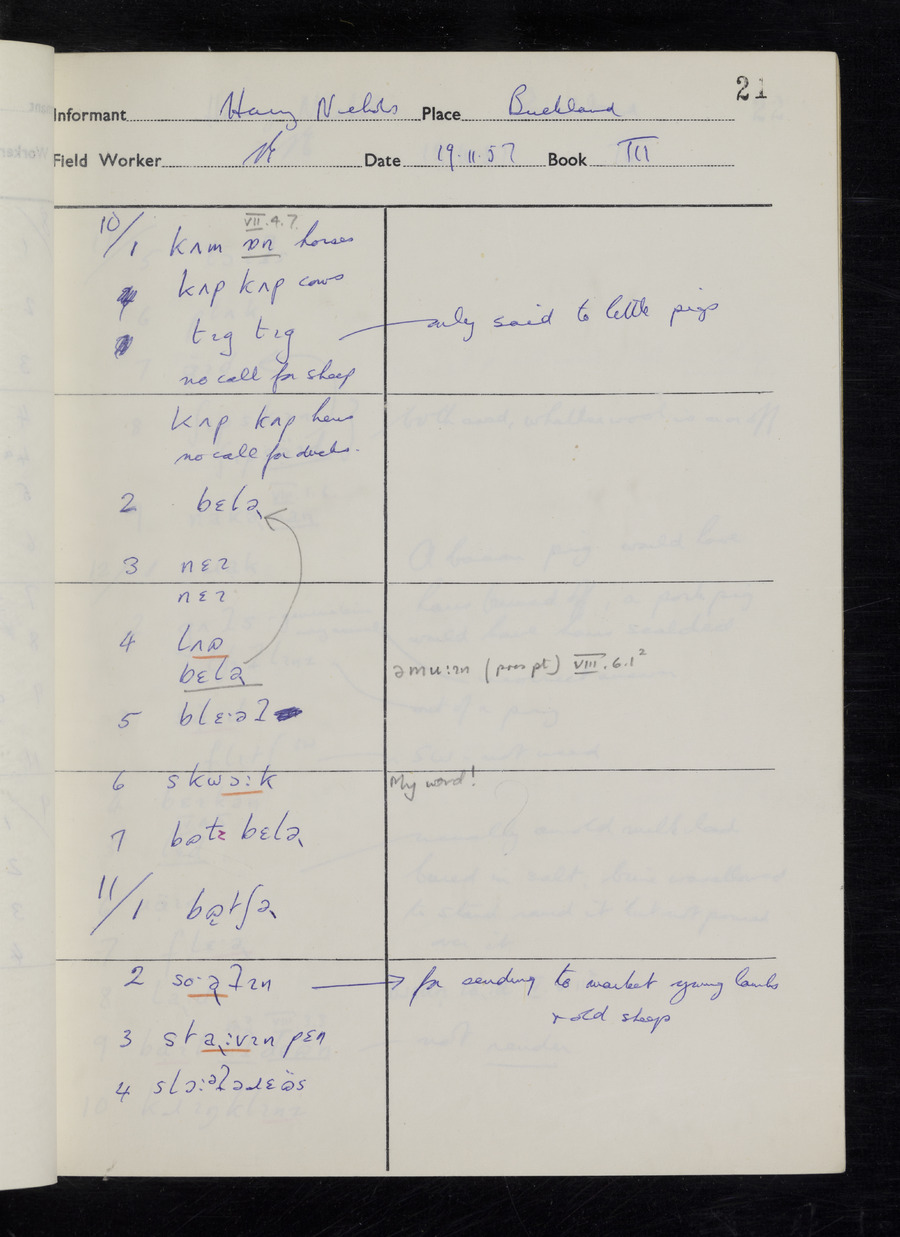 21
Informant Harry Nichols Place Buckland
Field Worker Date 19.11.57 Book III
VII.4.7.
10/1 kʌm ɒn horses
kʌp kʌp cows
tɪg tɪg — only said to little pigs
no call for sheep
kʌp kʌp hens
no call for ducks.
2 bɛlə
3 nɛɪ
nɛɪ
4 lʌɒ
bɛlə
əmu:ɪn (pres pt) VIII.6.1²
5 blɛ:əʔ
6 skwɔ:k
My word!
7 bɒtɪ bɛlə
11/1 bɒtʃə
2 so·əʔɪn → for sending to market young lambs
+ old sheep
3 sta:vɪn pɛn
4 slɔ:əʔəɹɛɒs